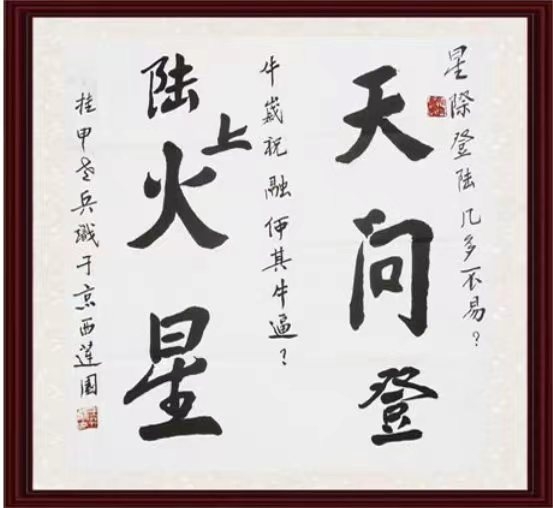 星際登陆几多不易?
天问登
牛歲祝融何其牛逼?
陆上火星
挂甲老兵戱于京西莲園